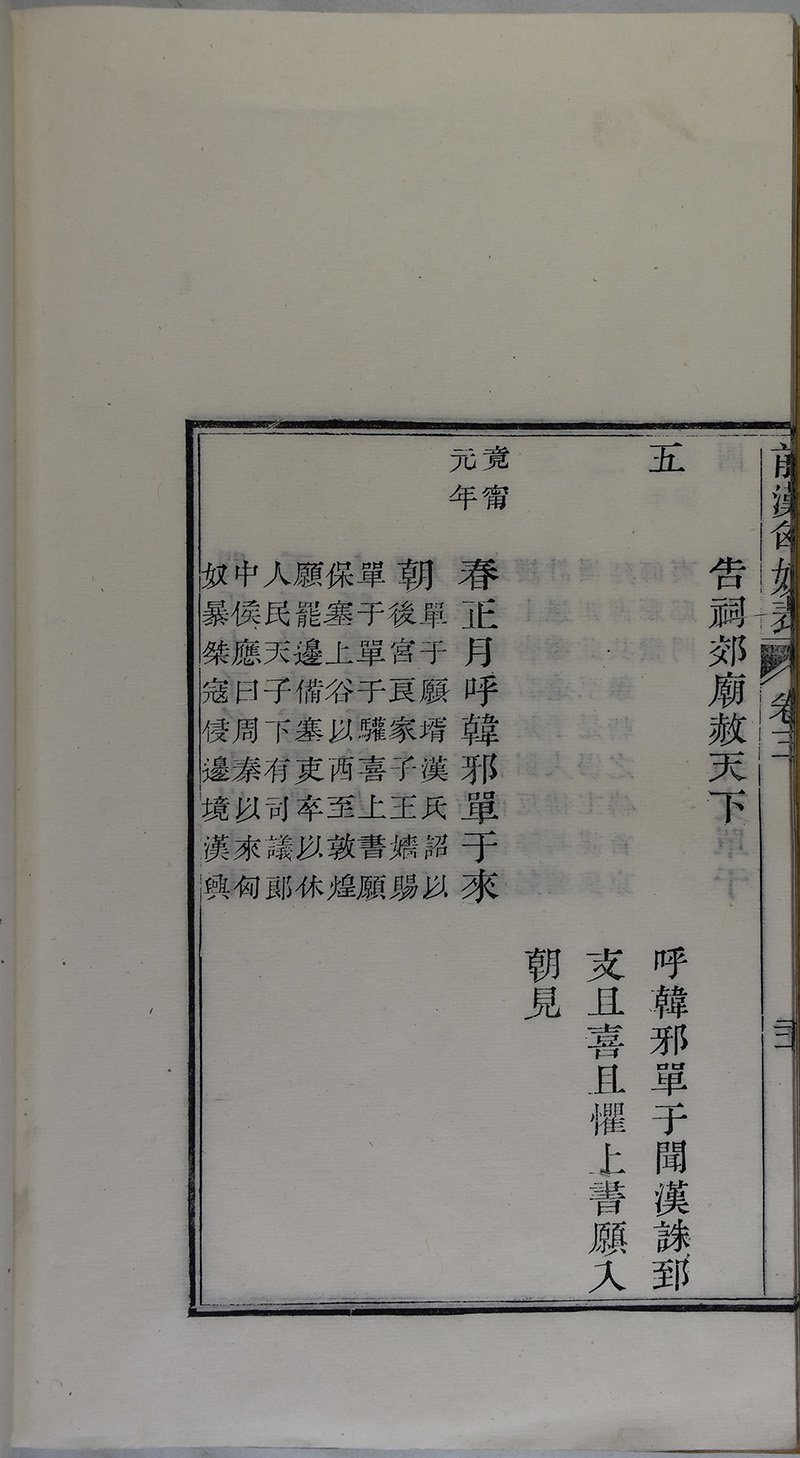 前漢匈奴表 卷三
告祠郊廟赦天下
五
呼韓邪單于聞漢誅郅
支且喜且懼上書願入
朝見
竟甯
元年
春正月呼韓邪單于來
朝單于願壻漢氏詔以
後宮良家子王嬙賜
單于單于驩喜上書願
保塞上谷以西至敦煌
願罷邊備塞吏卒以休
人民天子下有司議郎
中侯應曰周秦以來匈
奴暴桀寇侵邊境漢興